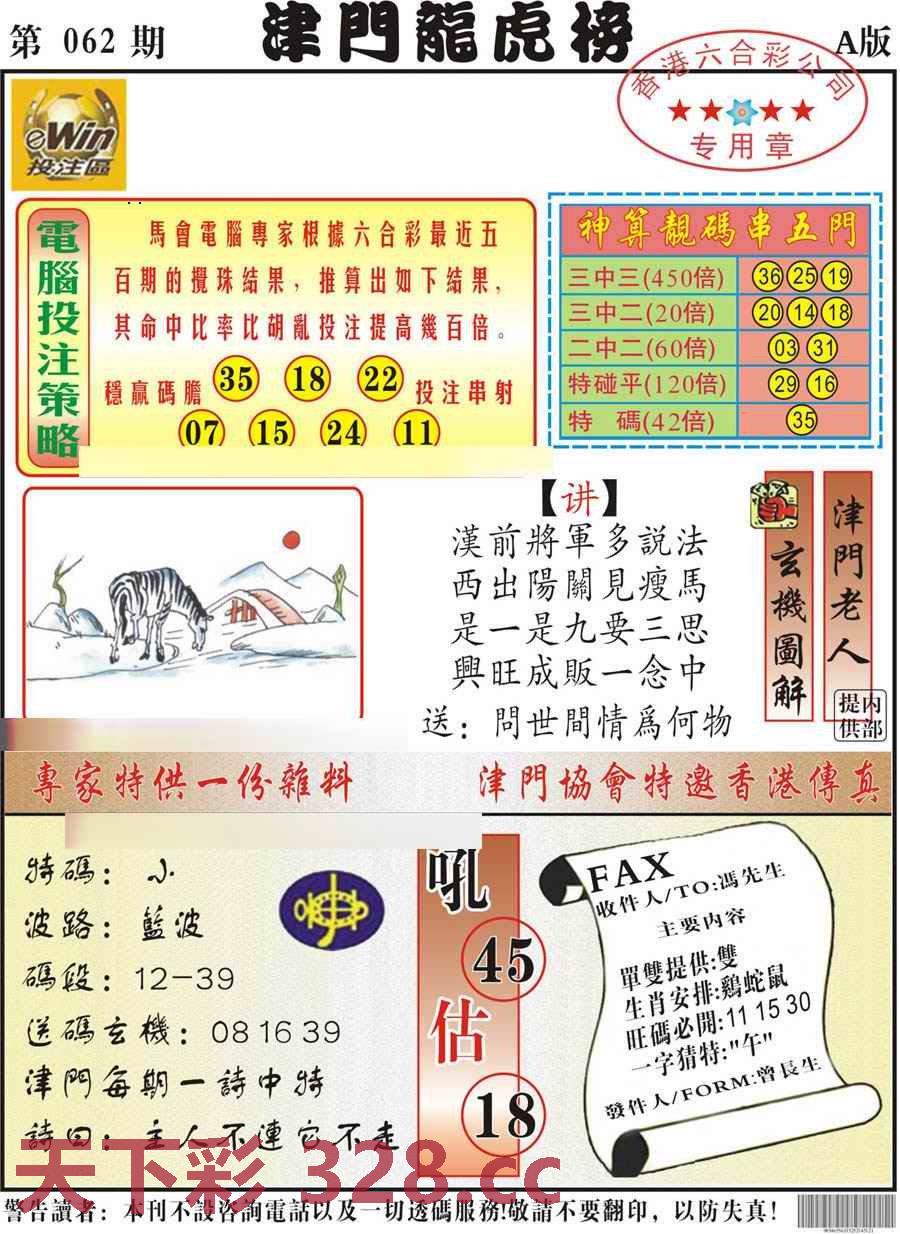 第 062 期
津門龍虎榜
A版
香港六合彩公司
专用章
eWin
投注區
電腦投注策略
馬會電腦專家根據六合彩最近五
百期的攪珠結果，推算出如下結果，
其命中比率比胡亂投注提高幾百倍。
穩贏碼膽 35 18 22 投注串射
07 15 24 11
神算靚碼串五門
三中三(450倍) 36 25 19
三中二(20倍) 20 14 18
二中二(60倍) 03 31
特碰平(120倍) 29 16
特 碼(42倍) 35
【讲】
漢前將軍多説法
西出陽關見瘦馬
是一是九要三思
興旺成販一念中
送：問世間情爲何物
玄機圖解
津門老人
内部提供
專家特供一份雜料
津門協會特邀香港傳真
特碼：小
波路：藍波
碼段：12-39
送碼玄機：08 16 39
津門每期一詩中特
詩曰：主人不連它不走
吼
45
估
18
FAX
收件人/TO:馮先生
主要内容
單雙提供:雙
生肖安排:鷄蛇鼠
旺碼必開:11 15 30
一字猜特:"午"
發件人/FORM:曾長生
天下彩 328.cc
警告讀者：本刊不設咨詢電話以及一切透碼服務!敬請不要翻印，以防失真！